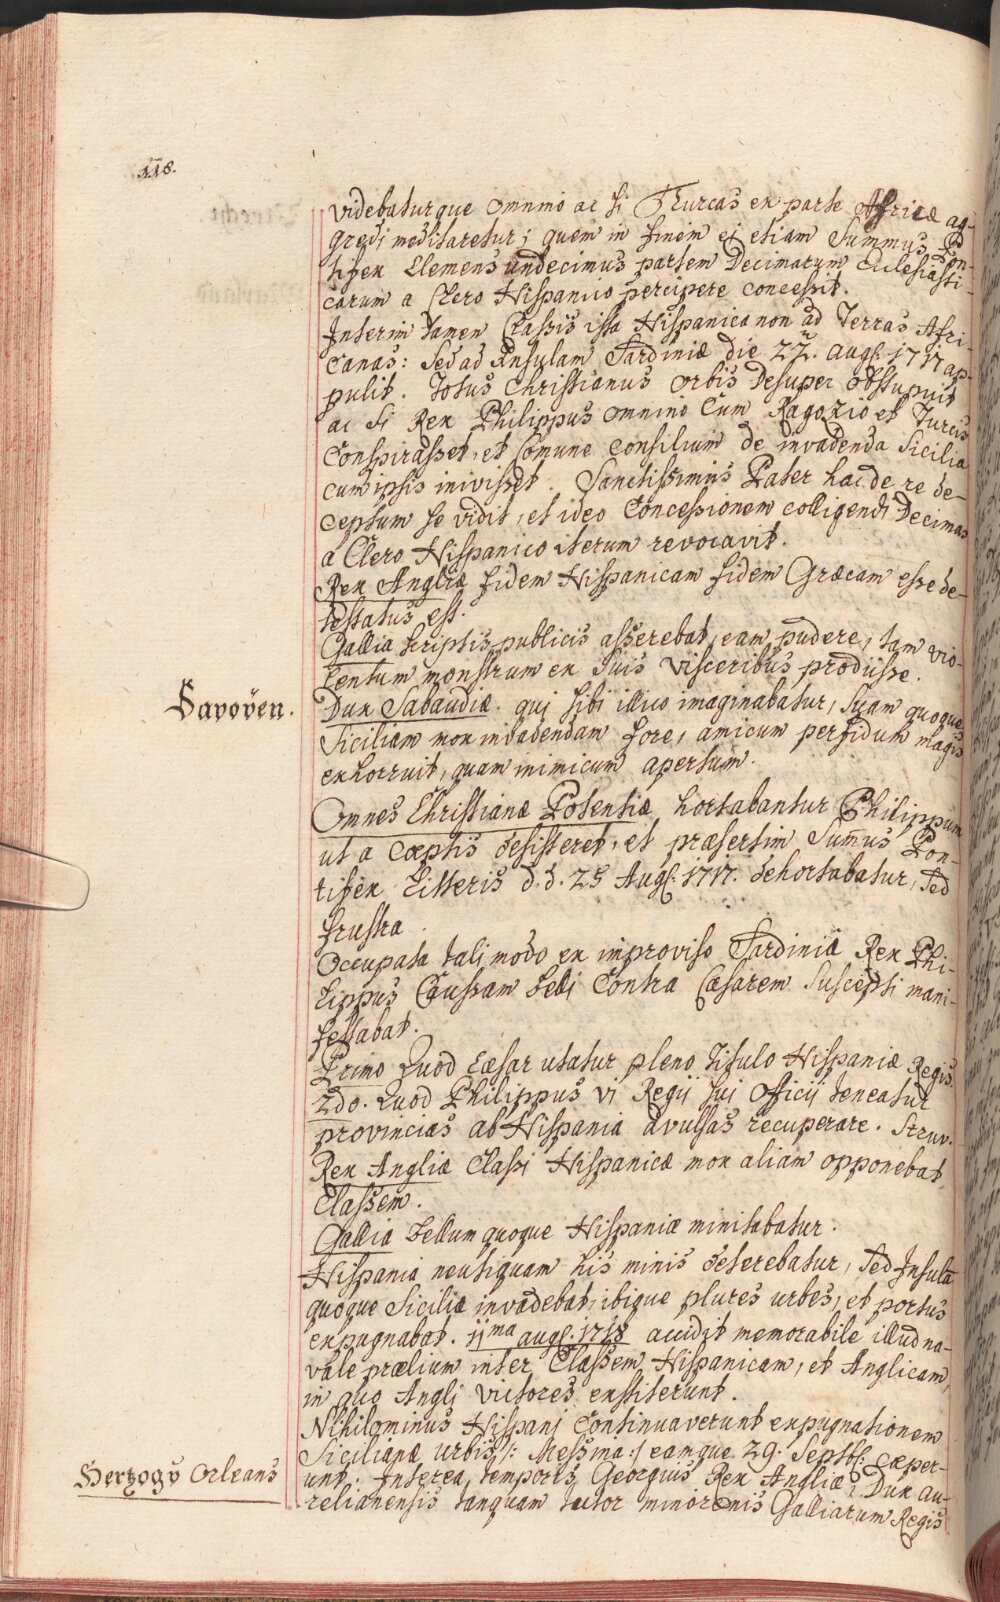 118.
videbaturque omnino ac si Thurcas ex parte Africæ ag-
gredi meditaretur; quem in finem ei etiam Summus Pon-
tifex Clemens undecimus partem Decimarum Ecclesiasti-
carum a Clero Hispanico percipere concessit.
Interim tamen Classis ista Hispanica non ad Terras Afri-
canas: sed ad Insulam Sardiniæ die 22. aug: 1717 ap-
pulit. Totus Christianus orbis desuper obstupuit
ac si Rex Philippus omnino Cum Ragozio et Turcis
Conspirasset, et Comune consilium de invadenda Sicilia
cum ipsis inivisset. Sanctissimus Pater hac de re de-
ceptum se vidit, et ideo Concessionem colligendi Decimas
a Clero Hispanico iterum revocavit.
Rex Angliæ fidem Hispanicam fidem Græcam esse de-
testatus est.
Gallia scriptis publicis asserebat, eam pudere, tam vio-
lentum monstrum ex suis visceribus prodiisse.
Savoÿen.
Dux Sabaudiæ. qui sibi illico imaginabatur, suam quoque
Siciliam mox invadendam fore, amicum perfidum magis
exhorruit, quam inimicum apertum.
Omnes Christianæ Potentiæ hortabantur Philippum
ut a cœptis desisteret, et præsertim Sum̄us Pon-
tifex Litteris d.d. 25 Aug: 1717. dehortabatur, sed
frustra.
Occupata tali modo ex improviso Sardiniâ Rex Phi-
lippus Caussam belli Contra Cæsarem suscepti mani-
festabat.
Primo Quod Cæsar utatur pleno titulo Hispaniæ Regis
2do. Quod Philippus vi Regii sui Officii teneatur
provincias ab Hispania avulsas recuperare. Struv.
Rex Angliæ Classi Hispanicæ mox aliam opponebat
Classem.
Gallia bellum quoque Hispaniæ minitabatur.
Hispania neutiquam his minis deterebatur, sed Insulā
quoque Siciliæ invadebat, ibique plures urbes, et portus
expugnabat. 11ma aug: 1718 accidit memorabile illud na-
vale prælium inter Classem Hispanicam, et Anglicam,
in quo Angli victores exstiterunt.
Nihilominus Hispani Continuaverunt expugnationem
Sicilianæ urbis /: Messina:/ eamque 29. Septb: cæper-
unt. Interea temporis Georgius Rex Angliæ, Dux Au-
Hertzogÿ Orleans
relianensis tanquam tutor minorenis Galliarum Regis